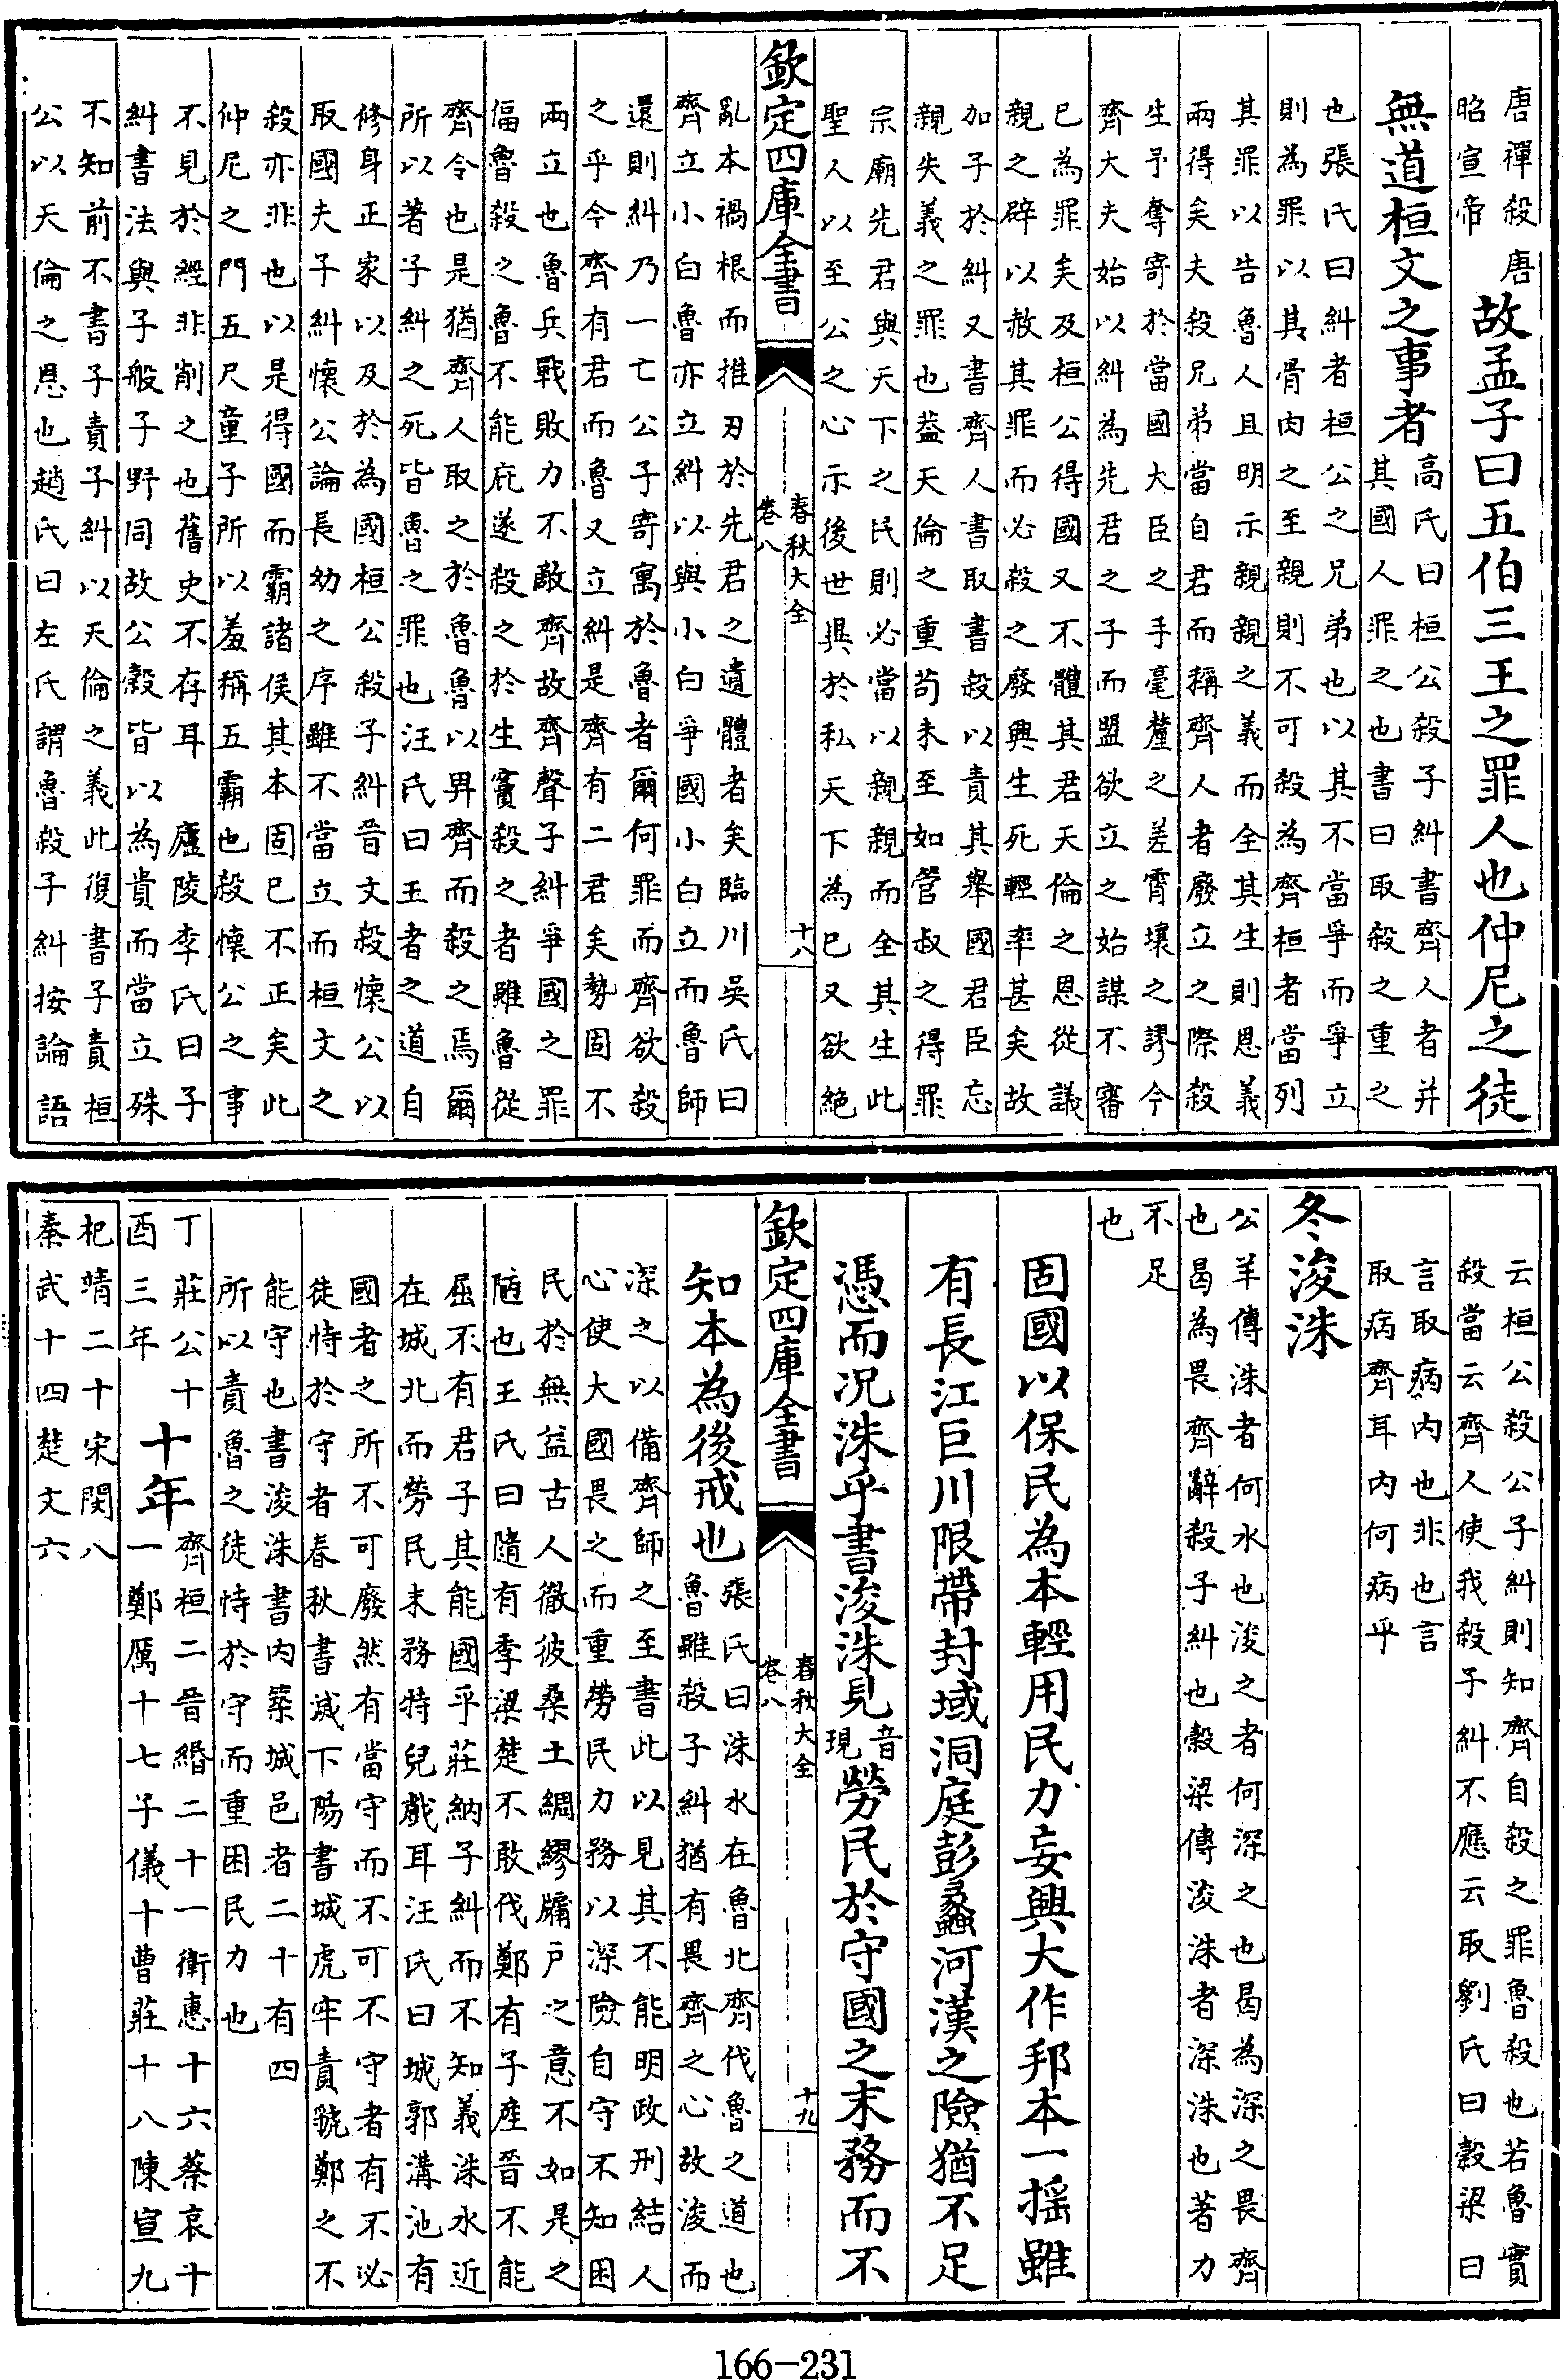 唐禪殺唐
昭宣帝
故孟子曰五伯三王之罪人也仲尼之徒
無道桓文之事者
高氏曰桓公殺子糾書齊人者并
其國人罪之也書曰取殺之重之
也張氏曰糾者桓公之兄弟也以其不當爭而爭立
則為罪以其骨肉之至親則不可殺為齊桓者當列
其罪以告魯人且明示親親之義而全其生則恩義
兩得矣夫殺兄弟當自君而稱齊人者廢立之際殺
生予奪寄於當國大臣之手毫釐之差霄壤之謬今
齊大夫始以糾為先君之子而盟欲立之始謀不審
已為罪矣及桓公得國又不體其君天倫之恩從議
親之辟以赦其罪而必殺之廢興生死輕率甚矣故
加子於糾又書齊人書取書殺以責其舉國君臣忘
親失義之罪也葢天倫之重茍未至如管叔之得罪
宗廟先君與天下之民則必當以親親而全其生此
聖人以至公之心示後世與於私天下為已又欲絶
欽定四庫全書
春秋大全
卷八
十八
亂本禍根而推刃於先君之遺體者矣臨川吳氏曰
齊立小白魯亦立糾以與小白爭國小白立而魯師
還則糾乃一亡公子寄寓於魯者爾何罪而齊欲殺
之乎今齊有君而魯又立糾是齊有二君矣勢固不
兩立也魯兵戰敗力不敵齊故齊聲子糾爭國之罪
偪魯殺之魯不能庇遂殺之於生竇殺之者雖魯從
齊令也是猶齊人取之於魯魯以畀齊而殺之焉爾
所以著子糾之死皆魯之罪也汪氏曰王者之道自
修身正家以及於為國桓公殺子糾晉文殺懷公以
取國夫子糾懷公論長幼之序雖不當立而桓文之
殺亦非也以是得國而霸諸侯其本固已不正矣此
仲尼之門五尺童子所以羞稱五霸也殺懷公之事
不見於經非削之也舊史不存耳　廬陵李氏曰子
糾書法與子般子野同故公糓皆以為貴而當立殊
不知前不書子責子糾以天倫之義此復書子責桓
公以天倫之恩也趙氏曰左氏謂魯殺子糾按論語
云桓公殺公子糾則知齊自殺之罪魯殺也若魯實
殺當云齊人使我殺子糾不應云取劉氏曰穀梁曰
言取病内也非也言
取病齊耳内何病乎
冬浚洙
公羊傳洙者何水也浚之者何深之也曷為深之畏齊
也曷為畏齊辭殺子糾也穀梁傳浚洙者深洙也著力
不足
也
固國以保民為本輕用民力妄興大作邦本一揺雖
有長江巨川限帶封域洞庭彭蠡河漢之險猶不足
憑而况洙乎書浚洙見
音
現
勞民於守國之末務而不
欽定四庫全書
春秋大全
卷八
十九
知本為後戒也
張氏曰洙水在魯北齊伐魯之道也
魯雖殺子糾猶有畏齊之心故浚而
深之以備齊師之至書此以見其不能明政刑結人
心使大國畏之而重勞民力務以深險自守不知困
民於無益古人徹彼桑土綢繆牖戶之意不如是之
陋也王氏曰隨有季梁楚不敢伐鄭有子産晉不能
屈不有君子其能國乎莊納子糾而不知義洙水近
在城北而勞民末務特兒戲耳汪氏曰城郭溝池有
國者之所不可廢然有當守而不可不守者有不必
徒恃於守者春秋書滅下陽書城虎牢責虢鄭之不
能守也書浚洙書内築城邑者二十有四
所以責魯之徒恃於守而重困民力也
丁莊公十
酉三年
十年
齊桓二晉緡二十一衛惠十六蔡哀十
一鄭厲十七子儀十曹莊十八陳宣九
杞靖二十宋閔八
秦武十四楚文六
166-231